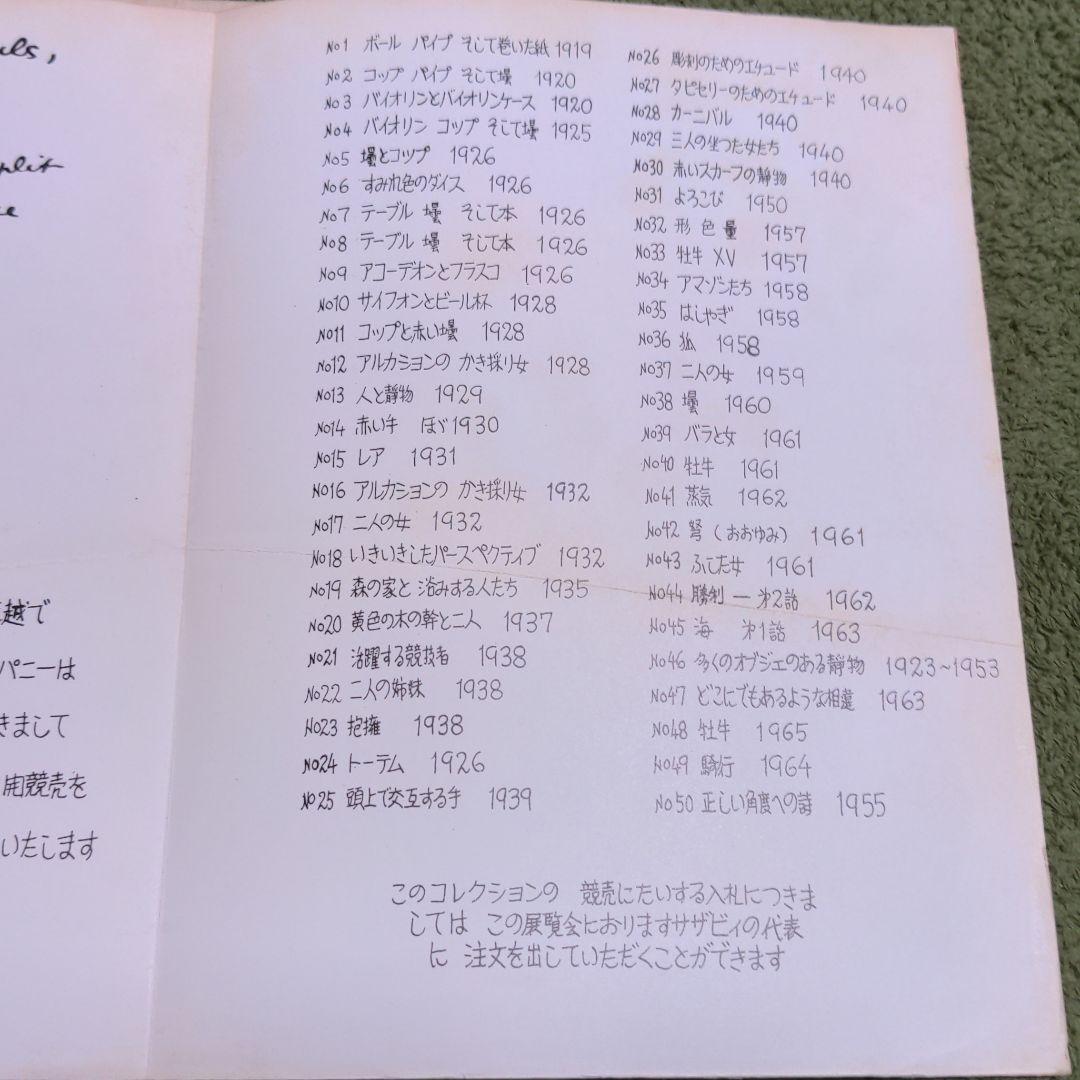 plit
越で
パニーは
きまして
用競売を
いたします
No1 ボール パイプ そして巻いた紙 1919
No2 コップ パイプ そして壜 1920
No3 バイオリンとバイオリンケース 1920
No4 バイオリン コップ そして壜 1925
No5 壜とコップ 1926
No6 すみれ色のダイス 1926
No7 テーブル 壜 そして本 1926
No8 テーブル 壜 そして本 1926
No9 アコーデオンとフラスコ 1926
No10 サイフオンとビール杯 1928
No11 コップと赤い壜 1928
No12 アルカションの かき採り女 1928
No13 人と静物 1929
No14 赤い手 ほゞ1930
No15 レア 1931
No16 アルカションの かき採り女 1932
No17 二人の女 1932
No18 いきいきしたパースペクティブ 1932
No19 森の家と 浴みする人たち 1935
No20 黄色の木の幹と二人 1937
No21 活躍する競技者 1938
No22 二人の姉妹 1938
No23 抱擁 1938
No24 トーテム 1926
No25 頭上で交互する手 1939
No26 彫刻のためのエチュード 1940
No27 タピセリーのためのエチュード 1940
No28 カーニバル 1940
No29 三人の坐つた女たち 1940
No30 赤いスカーフの静物 1940
No31 よろこび 1950
No32 形 色 量 1957
No33 牡牛 XV 1957
No34 アマゾンたち 1958
No35 はしやぎ 1958
No36 狐 1958
No37 二人の女 1959
No38 壜 1960
No39 バラと女 1961
No40 牡牛 1961
No41 蒸気 1962
No42 弩 (おおゆみ) 1961
No43 ふした女 1961
No44 勝利 ー 第2話 1962
No45 海 第1話 1963
No46 多くのオブジェのある静物 1923~1953
No47 どこにでもあるような相違 1963
No48 牡牛 1965
No49 騎行 1964
No50 正しい角度への詩 1955
このコレクションの 競売にたいする入札につきま
しては この展覧会におりますサザビィの代表
に 注文を出していただくことができます